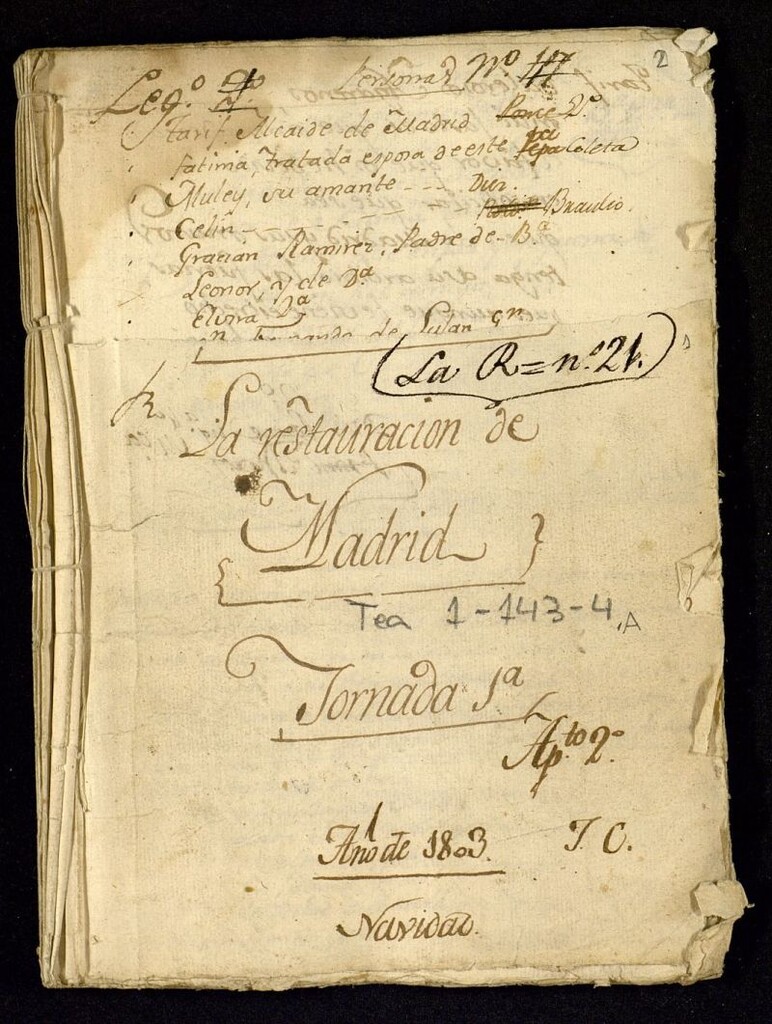 2
Leg.º 2º Personas Nº 17
Tarif Alcaide de Madrid Ponce 2º.
Fatima, tratada esposa de este Pepa Coleta
Muley, su amante --- Diez.
Celin - Braulio.
Gracian Ramirez, Padre de - Dª
Leonor, y de Dª
Elvira
de Lujan
(La R = nº 21.)
La restauracion de
Madrid
Tea 1-143-4, A
Jornada 1ª
Ap.to 2º
Año de 1803. J C.
Navidad.